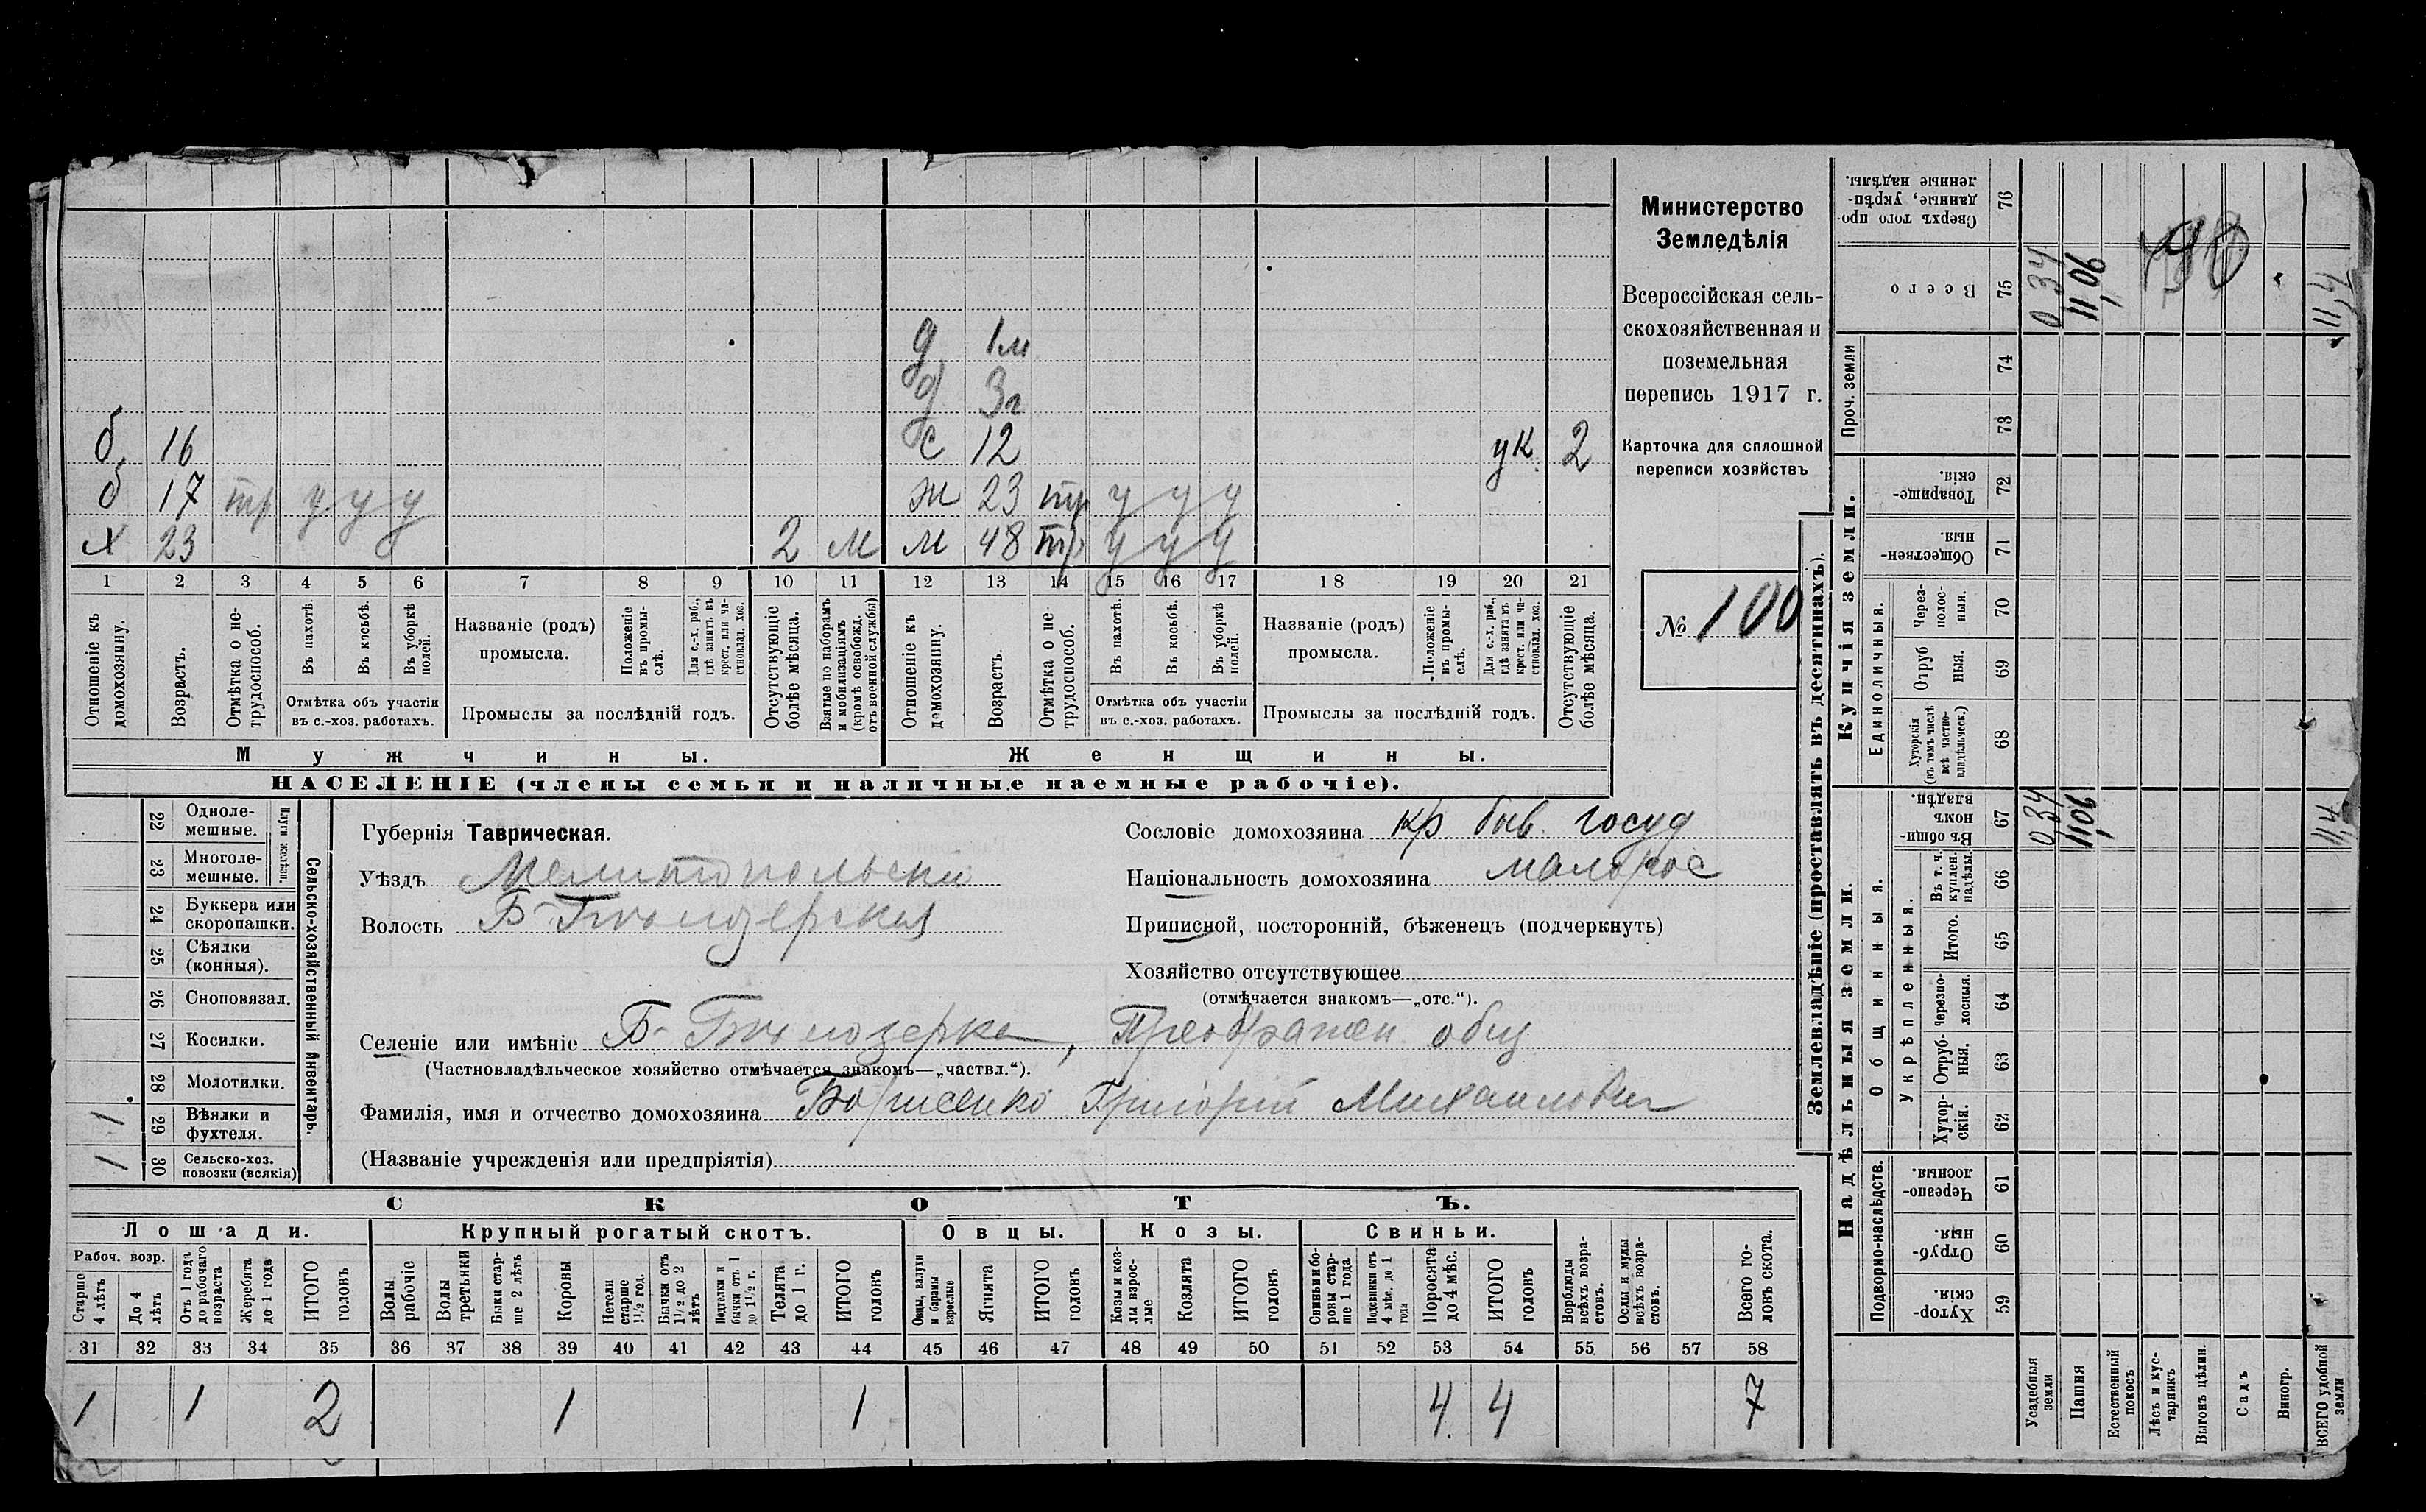 Министерство
Земледѣлія
Всероссійская сель-
скохозяйственная и
поземельная
перепись 1917 г.
Карточка для сплошной
переписи хозяйствъ
№ 100
д 1м
д 3г
б 16 с 12 ук 2
б 17 тр у у у ж 23 тр у у у
х 23 2 м м 48 тр у у у
1 2 3 4 5 6 7 8 9 10 11 12 13 14 15 16 17 18 19 20 21
Отношеніе къ домохозяину.
Возрастъ.
Отмѣтка о не-трудоспособ.
Въ пахотѣ.
Въ косьбѣ.
Въ уборкѣ полей.
Отмѣтка объ участіи
въ с.-хоз. работахъ.
Названіе (родъ)
промысла.
Положеніе въ промы-слѣ.
Для с.-х. раб., гдѣ занятъ въ крест. или ча-стновлад. хоз.
Промыслы за послѣдній годъ.
Отсутствующіе болѣе мѣсяца.
Взятые по наборамъ и мобилизаціямъ (кромѣ освобожд. отъ военной службы)
Отношеніе къ домохозяину.
Возрастъ.
Отмѣтка о не-трудоспособ.
Въ пахотѣ.
Въ косьбѣ.
Въ уборкѣ полей.
Отмѣтка объ участіи
въ с.-хоз. работахъ.
Названіе (родъ)
промысла.
Положеніе въ промы-слѣ.
Для с.-х. раб., гдѣ занята въ крест. или ча-стновлад. хоз.
Промыслы за послѣдній годъ.
Отсутствующіе болѣе мѣсяца.
Мужчины.
Женщины.
НАСЕЛЕНІЕ (члены семьи и наличные наемные рабочіе).
Сельско-хозяйственный инвентарь.
Плуги желѣзн.
22 Одноле-мешные.
23 Многоле-мешные.
24 Буккера или скоропашки.
25 Сѣялки (конныя).
26 Сноповязал.
27 Косилки.
28 Молотилки.
1 29 Вѣялки и фухтеля.
1 30 Сельско-хоз. повозки (всякія)
Губернія Таврическая.
Уѣздъ Мелитопольскій
Волость Б-Бѣлозерская
Сословіе домохозяина кр. быв. госуд
Національность домохозяина малорос
Приписной, посторонній, бѣженецъ (подчеркнуть)
Хозяйство отсутствующее
(отмѣчается знакомъ—„отс.“).
Селеніе или имѣніе Б-Бѣлозерка, Преображен. общ
(Частновладѣльческое хозяйство отмѣчается знакомъ—„частвл.“).
Фамилія, имя и отчество домохозяина Борисенко Григорій Михаилович
(Названіе учрежденія или предпріятія)
СКОТЪ.
Лошади.
Крупный рогатый скотъ.
Овцы.
Козы.
Свиньи.
Рабоч. возр.
Старше 4 лѣтъ
До 4 лѣтъ
Отъ 1 года до рабочаго возраста
Жеребята до 1 года
ИТОГО головъ
Волы рабочіе
Волы третьяки
Быки стар-ше 2 лѣтъ
Коровы
Нетели старше 1½ год.
Бычки отъ 1½ до 2 лѣтъ
Подтелки и бычки отъ 1 до 1½ г.
Телята до 1 г.
ИТОГО головъ
Овцы, валухи и бараны взрослые
Ягнята
ИТОГО головъ
Козы и коз-лы взрос-лые
Козлята
ИТОГО головъ
Свиньи и бо-ровы стар-ше 1 года
Подсвинки отъ 4 мѣс. до 1 года
Поросята до 4 мѣс.
ИТОГО головъ
Верблюды всѣхъ возра-стовъ.
Ослы и мулы всѣхъ возра-стовъ.
Всего го-ловъ скота.
31 32 33 34 35 36 37 38 39 40 41 42 43 44 45 46 47 48 49 50 51 52 53 54 55 56 57 58
1 1 2 1 1 4 4 7
Землевладѣніе (проставлять въ десятинахъ).
Сверхъ того про-данные, укрѣп-ленные надѣлы. 76
Всего 75 0,34 11,06 11,4
90
Проч. земли 74 73
Купчія земли.
Товарище-скія. 72
Обществен-ныя. 71
Единоличныя.
Через-полос-ныя. 70
Отруб ныя. 69
Хуторскія (въ томъ числѣ всѣ частно-владѣльческ.) 68
Надѣльныя земли.
Общинныя.
Въ общи-номъ владѣн. 67 0,34 11,06 11,4
Укрѣпленныя.
Въ т. ч. куплен. надѣлы. 66
Итого. 65
Черезпо-лосныя. 64
Отруб-ныя. 63
Хутор-скія. 62
Подворно-наслѣдств.
Черезпо-лосныя. 61
Отруб-ныя. 60
Хутор-скія. 59
Усадебныя земли
Пашня
Естественный покосъ
Лѣсъ и кус-тарникъ
Выгонъ цѣлин.
Садъ
Виногр.
ВСЕГО удобной земли